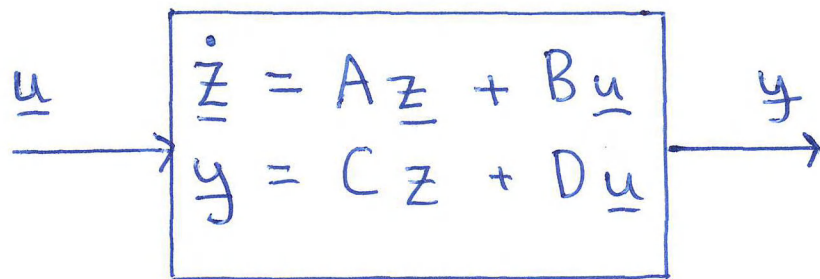 u
ż = A z + B u
y = C z + D u
y